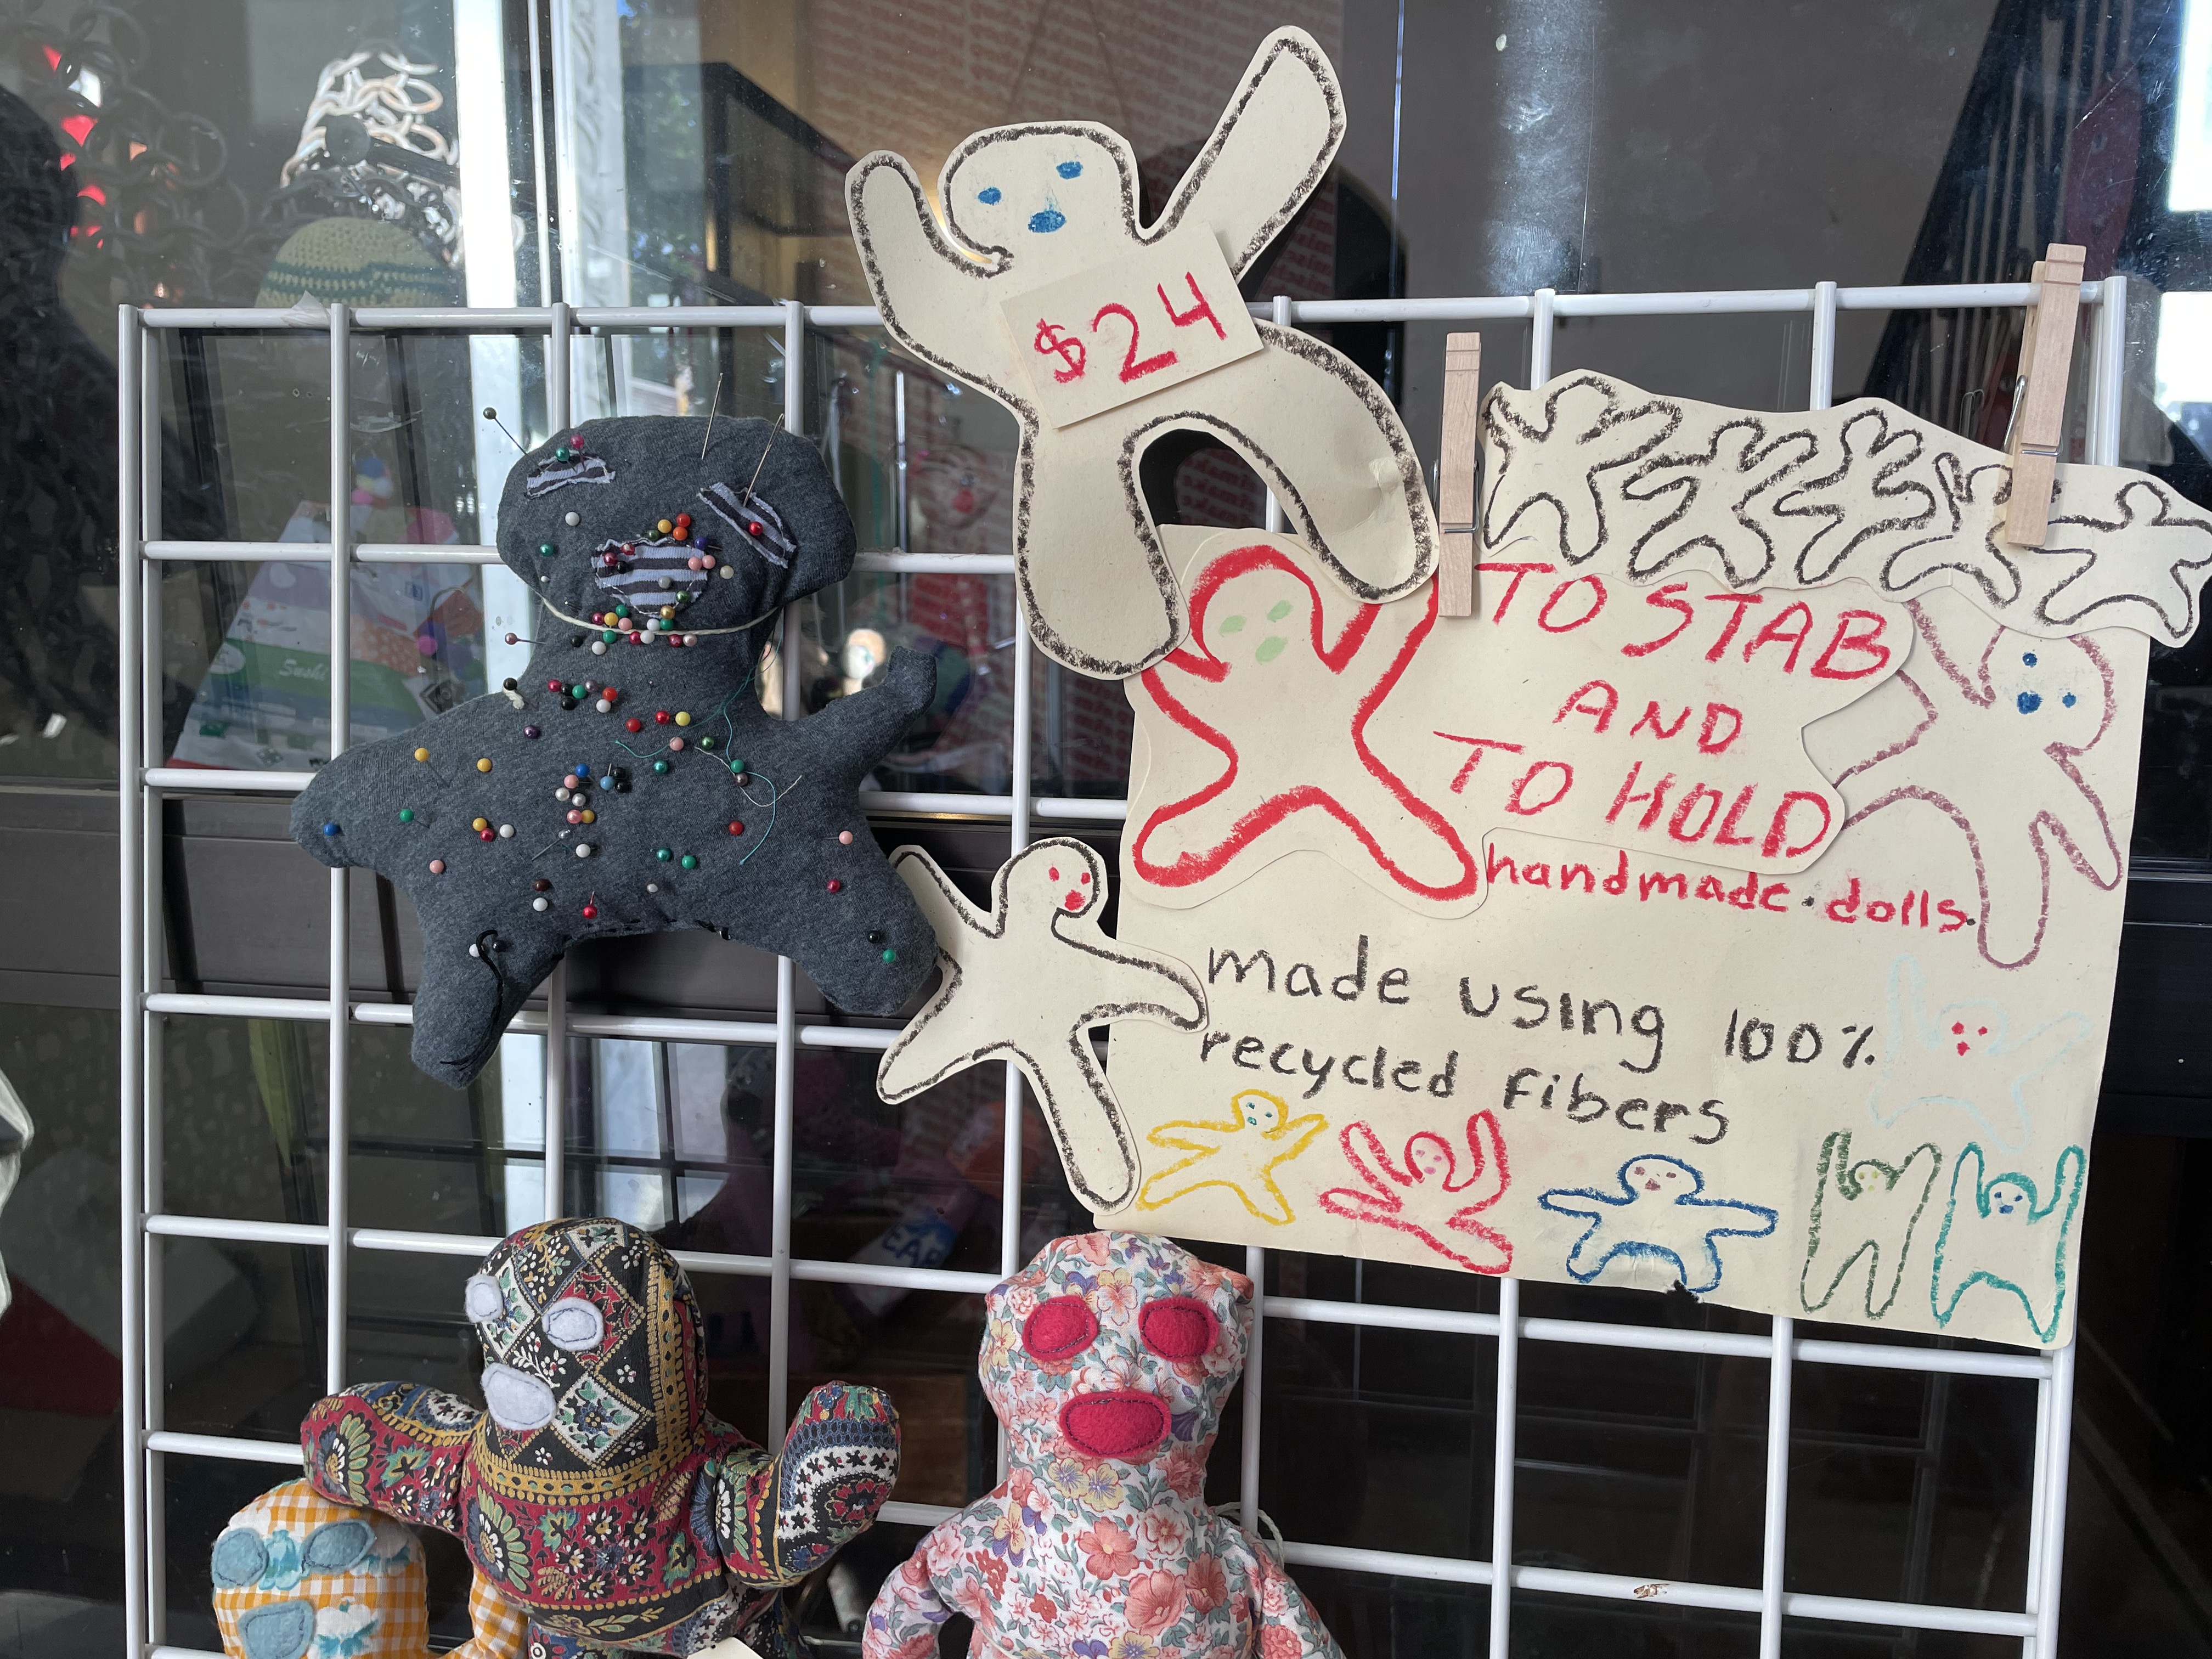 $24
TO STAB
AND
TO HOLD
handmade. dolls.
made using 100%
recycled fibers